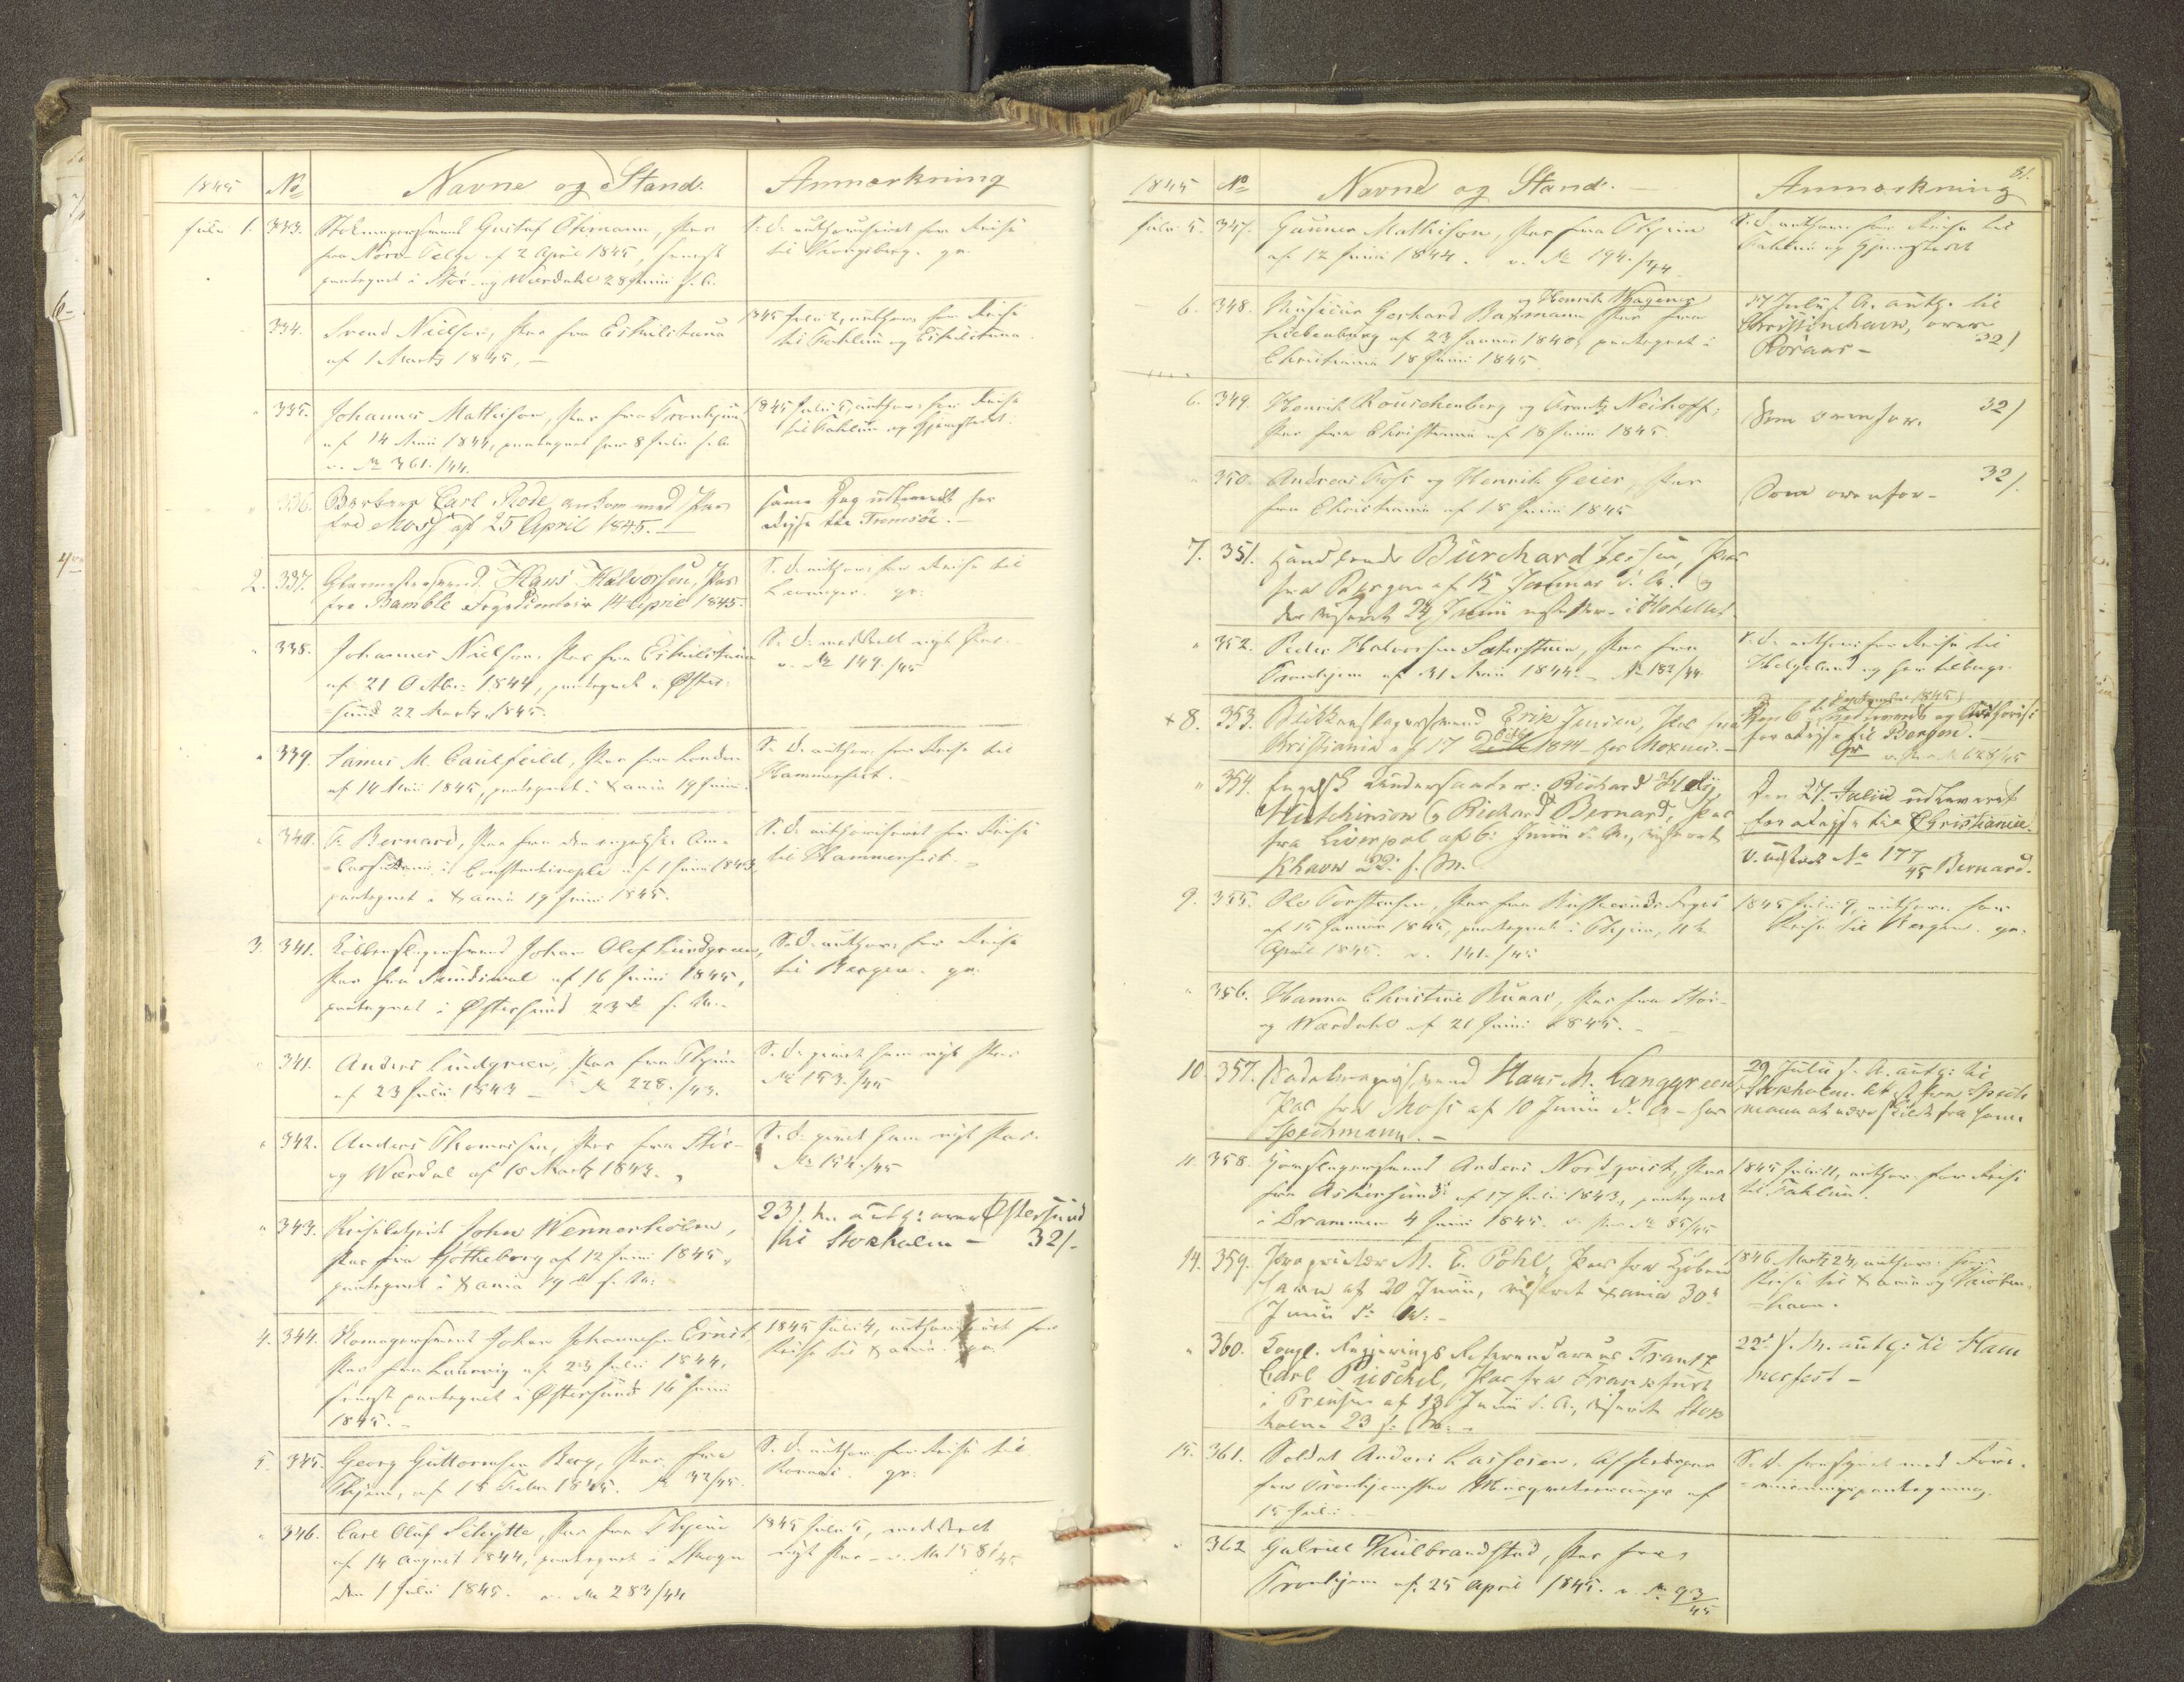 1845 No Navne og Stand. Anmærkning
Juli 1. 333. Gustaf Öhrmann, Pas
fra Norr Telge af 2 April 1845, senest
paategnet i Stör- og Værdahl 28 Juni s. A.
S. D. authoriseret for Reise
til Kongsberg. gr.
334. Svend Nielsen, Pas fra Eskilstuna
af 1 Marts 1845. —
1845 Juli 2, author. for Reise
til Fahlun og Eskilstuna.
" 335. Johannes Mathison, Pas fra Tronhjem
af 14 Mai 1844, paategnet her 8 Juli s. A.
v. No 361./44.
1845 Juli 5, author. for Reise
til Fahlun og Hjemstedet.
" 336. Barber Carl Rode, ankom med Pas
fra Moss af 25 April 1845. —
samme Dag udleveret for
Reise til Tromsöe. —
2. 337. Glarmestersvend Hans Halvorsen, Pas
fra Bamble Fogderi 14 April 1845.
S. D. author. for Reise til
Levanger. gr.
" 338. Johannes Nielsen, Pas fra Eskilstuna
af 21 Octbr. 1844, paategnet i Øster-
sund 22 Marts 1845.
S. D. meddeelt nyt Pas.
v. No 149./45
" 339. James M. Caulfeild, Pas fra London
af 14 Mai 1845, paategnet i Xania 19 Juni.
S. D. author. for Reise til
Hammerfest. —
" 340. F. Bernard, Pas fra den engelske Am-
bassade i Constantinople af 1 Juni 1843,
paategnet i Xania 19 Juni 1845.
S. D. authoriseret for Reise
til Hammerfest. —
3. 341. Kobberslagersvend Johan Olof Lundgreen,
Pas fra Sundsval af 16 Juni 1845,
paategnet i Østersund 23de s. M.
S. D. author. for Reise
til Bergen. gr.
" 341. Anders Lindgreen, Pas fra Thjem
af 23 Juli 1843 — No 228./43.
S. D. givet ham nyt Pas
No 153./45
" 342. Anders Thomessen, Pas fra Stör-
og Værdal af 18 Marts 1843. —
S. D. givet ham nyt Pas.
No 154./45
" 343. John Wennerholm,
Pas fra Gøtheborg af 12 Juni 1845,
paategnet i Xania 19 de s. M.
23/. M. autg: over Østersund
til Stokholm — 32/-
4. 344. Johan Johannesen Ernst
Pas fra Laurvig af 23 Juli 1844,
senest paategnet i Østersund 16 Juni
1845. —
1845 Juli 4, authoriseret for
Reise til Xania. gr.
5. 345. Georg Guttormsen Berg, Pas fra
Thjem, af 18 Febr 1845. No 32/45.
S. D. author. for Reise til
Roraas. gr:
" 346. Carl Oluf Schytte, Pas fra Thjem
af 14 August 1844, paategnet i Skogn
den 1 Juli 1845. v. No 283/44
1845 Juli 5, meddeelt
nyt Pas — v. No 158/45
81.
1845 No Navne og Stand. — Anmærkning
Juli 5. 347. Gunner Mathison, Pas fra Thjem
af 12 Juni 1844. v. No 194./44.
S. D. author. for Reise til
Fahlun og Hjemstedet
6. 348. Musicus Gerhard Baxmann og Henrik Wagener Pas fra
Liebenburg af 23 Januar 1840, paategnet i
Christiania 18 Juni 1845.
Juli s. A. autg. til
Christinehavn, over
Röraas — 32/
6. 349. Henrik Rouschenberg og Frantz Neihoff,
Pas fra Christiania af 18 Juni 1845.
Som ovenfor. 32/
" 350. Andreas Foss og Henrik Geier, Pas
fra Christiania af 18 Juni 1845
Som ovenfor — 32/.
7. 351. Handlende Burchard Jessen, Pas
fra Bergen af 15 Januar d. A. og
der viseret 24 Juni i Hotellet.
" 352. Peder Halvorsen Sæterstuen, Pas fra
Tronhjem af 31 Mai 1844. — No 182/44
S. D. author. for Reise til
Helgeland og her tilbage.
+ 8. 353. Blikkenslagersvend Erik Jensen, Pas fra
Christiania af 17 Octb 1844 — hos Moxnes. —
Den 6 September 1845 udleveret og Authoris:
for Reise til Bergen. —
gr v. Pas No 628/45
" 354. Engelsk Undersaatter: Richard Hely
Hutchinson og Richard Bernard, Pas
fra Liverpol af 6: Juni d. A., viseret
Khavn 22: s. M.
Den 27. Julii udleveret
for Reise til Christiania.
v. No 177/45 Bernard.
9. 355. Ole Torstensen, Pas fra Buskeruds Fogd
af 15 Januar 1845, paategnet i Thjem, 11te
April 1845. v. 141./45
1845 Juli 9, author. for
Reise til Bergen. gr.
" 356. Hanna Christine Buaas, Pas fra Stör-
og Værdahl af 21 Juni 1845. —
10. 357. Sadelmagersvend Hans M. Langgreen
Pas fra Moss af 10 Juni d. A — hos
Speckmann. —
29 Julii s. A. autg: til
Stokholm. fra Speck
mann at være skildt fra ham
11. 358. Anders Nordqvist, Pas
fra Askersund af 17 Juli 1843, paategnet
i Drammen 4 Juni 1845. v. Pas No 85/45
1845 Juli 11, author. for Reise
til Fahlun.
14. 359. Proprietær M. E. Pohl, Pas fra Kjöben
havn af 20 Junii, viseret Xania 30te
Junii d: A: —
1846 Marts 24, author. for
Reise til Xania og Kiöben-
=havn.
" 360. Kongl. Regjerings Referendarius Frantz
Carl Püschel, Pas fra Frankfurt
i Preusen af 13 Junii d. A., viseret Stok
holm 23 s. M. —
22d s. M. autg: til Ham
merfest —
15. 361. Soldat Anders Larsen, Afskedspas
fra Tronhjemske Musqueteercorps af
15 Juli. —
S. D. forsynet med Forev-
=visningspaategning.
" 362 Gabriel Kulbrandstad, Pas fra
Tronhjem af 25 April 1845. v. No 93/45